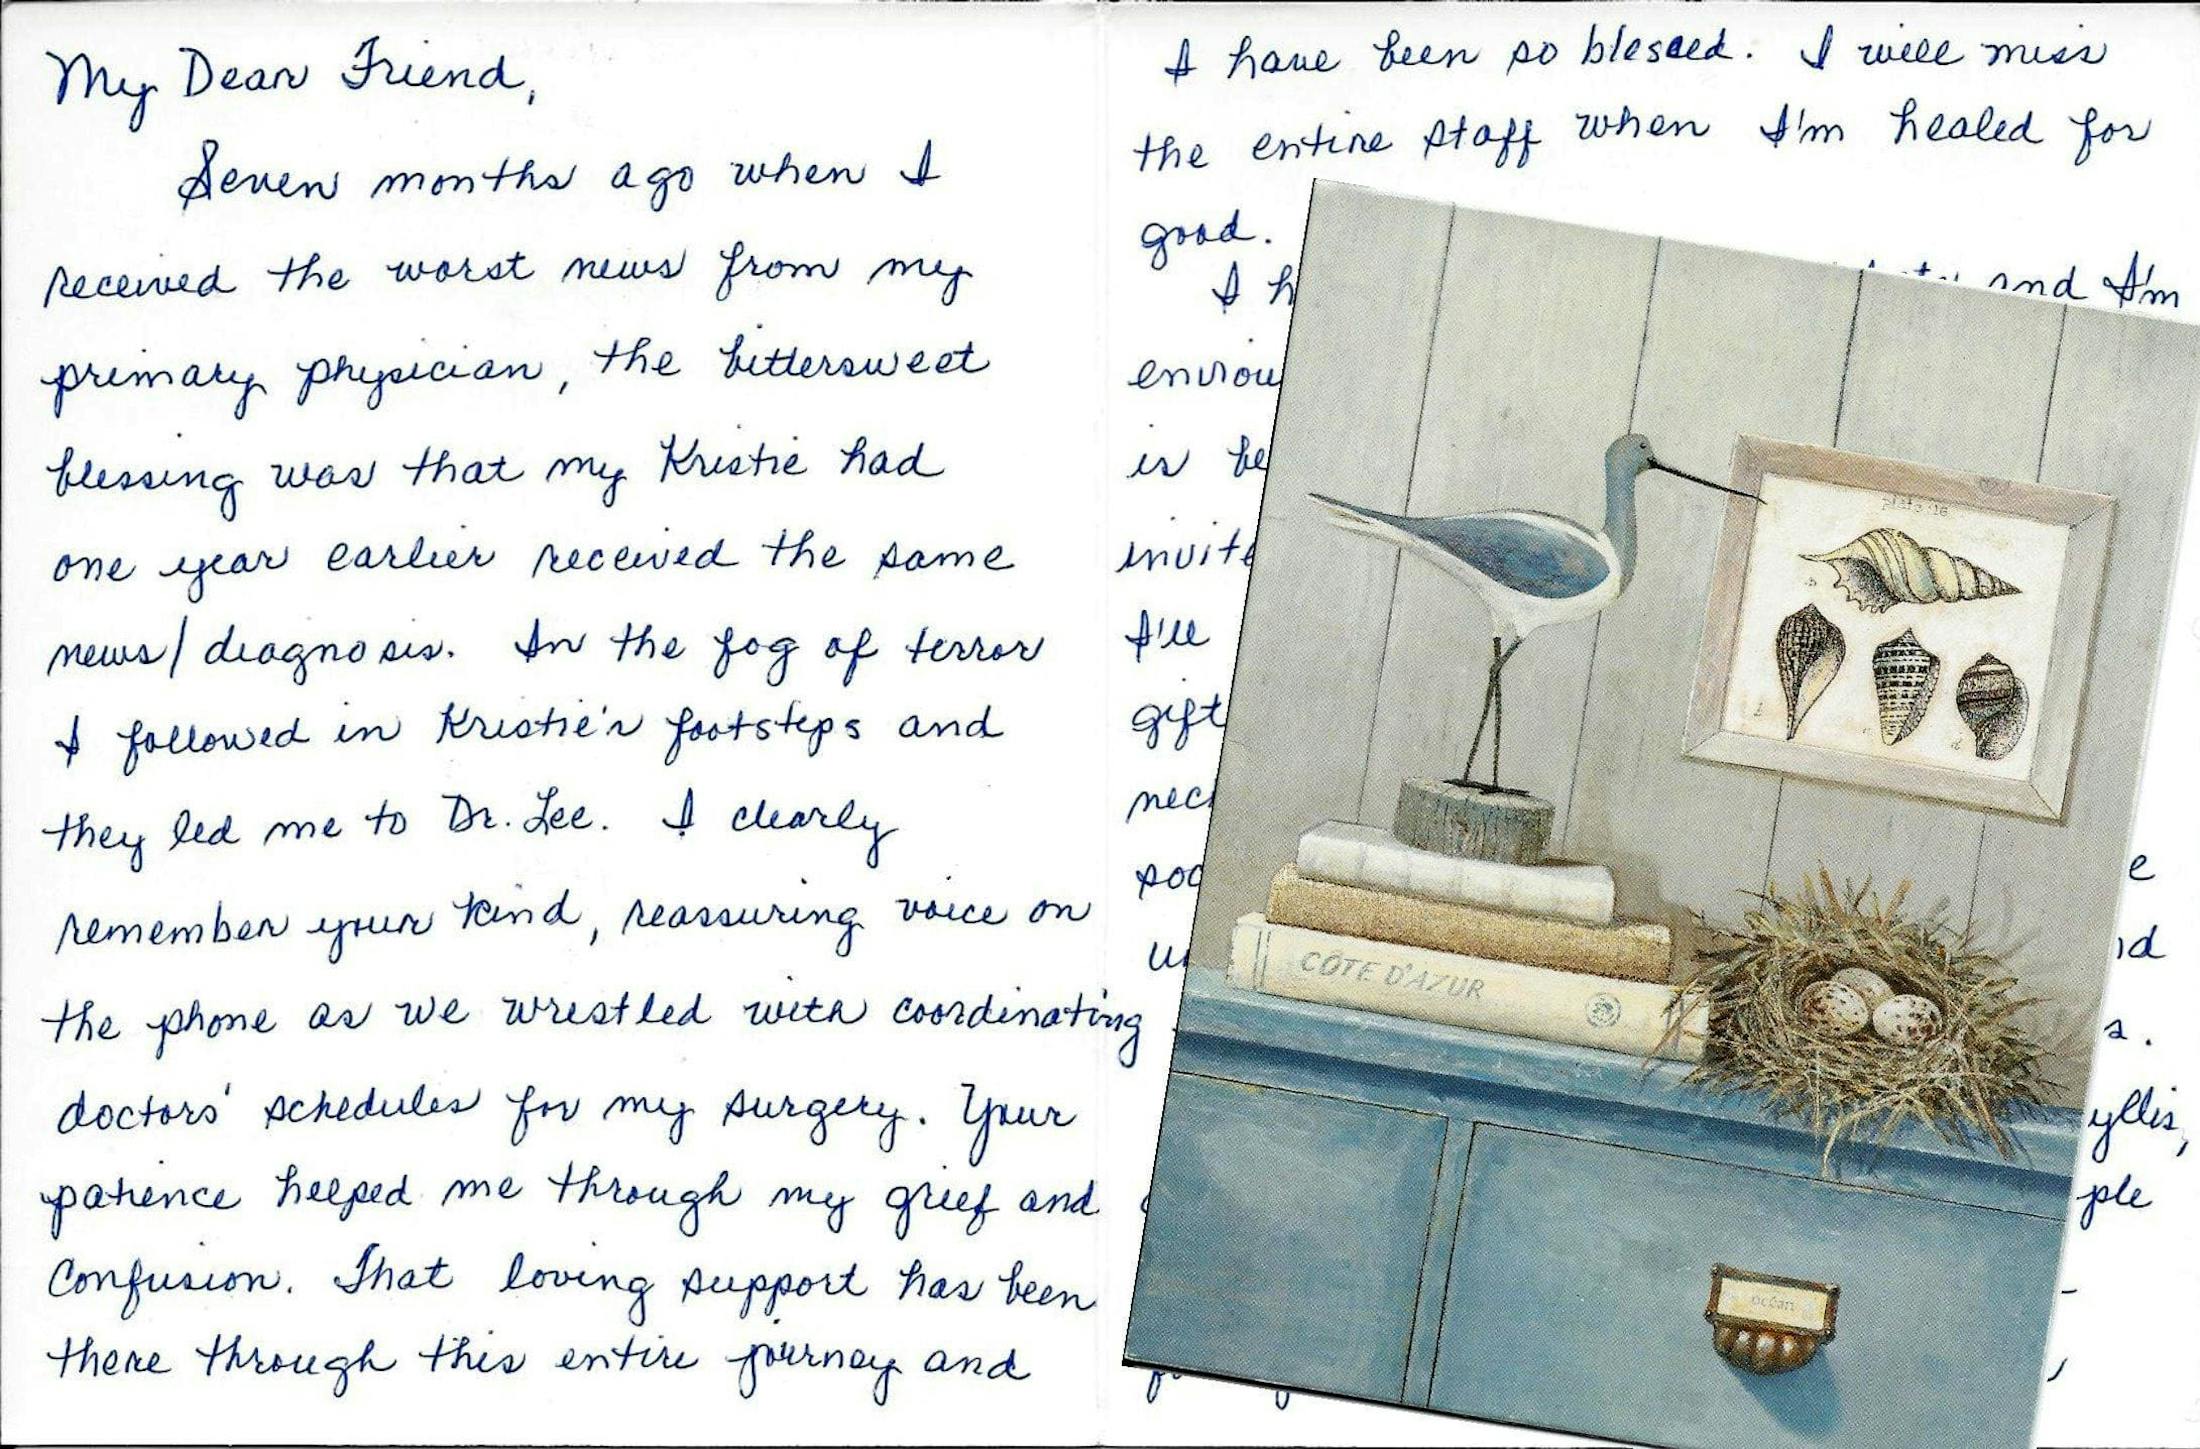 My Dear Friend,
Seven months ago when I
received the worst news from my
primary physician, the bittersweet
blessing was that my Kristie had
one year earlier received the same
news/diagnosis. In the fog of terror
I followed in Kristie's footsteps and
they led me to Dr. Lee. I clearly
remember your kind, reassuring voice on
the phone as we wrestled with coordinating
doctors' schedules for my surgery. Your
patience helped me through my grief and
confusion. That loving support has been
there through this entire journey and
I have been so blessed. I will miss
the entire staff when I'm healed for
good.
I and I'm
is
I'll
gift
CÔTE D'AZUR
plate 16
océan